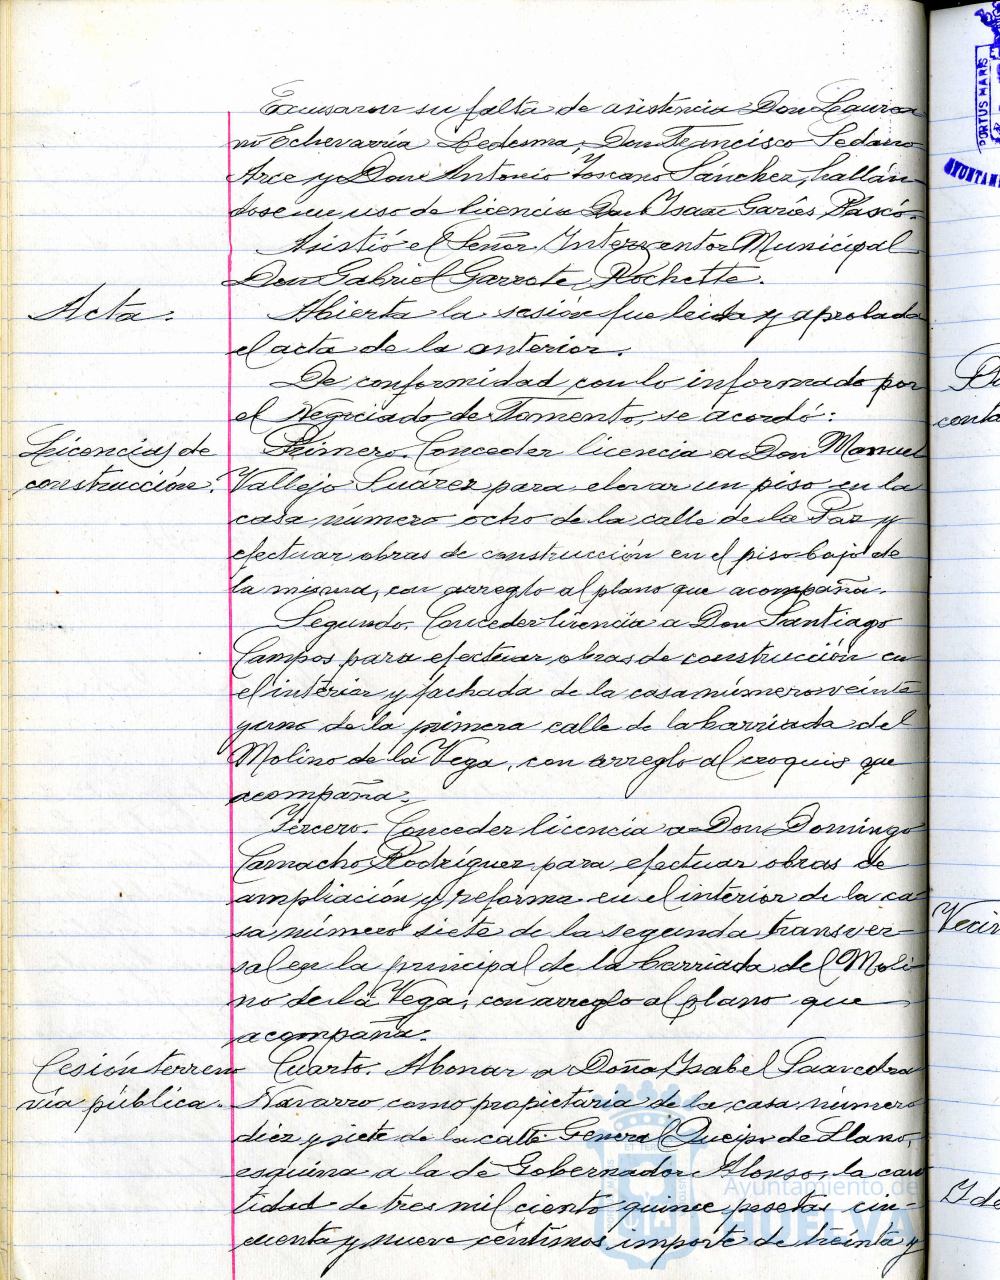 Excusaron su falta de asistencia Don Laurea
no Echevarría Ledesma, Don Francisco Sedano
Arce y Don Antonio Toscano Sánchez, hallán-
dose en uso de licencia Don Isaac Garcés Pascó.
Asistió el Señor Interventor Municipal
Don Gabriel Garrote Rochette.
Acta.
Abierta la sesión fue leida y aprobada
el acta de la anterior.
De conformidad con lo informado por
el Negociado de Fomento, se acordó:
Licencias de
construcción.
Primero. Conceder licencia a Don Manuel
Vallejo Suárez para elevar un piso en la
casa número ocho de la calle de la Paz y
efectuar obras de construcción en el piso bajo de
la misma, con arreglo al plano que acompaña.
Segundo. Conceder licencia a Don Santiago
Campos para efectuar obras de construcción en
el interior y fachada de la casa número veinte
y uno de la primera calle de la barriada del
Molino de la Vega, con arreglo al croquis que
acompaña.
Tercero. Conceder licencia a Don Domingo
Camacho Rodríguez para efectuar obras de
ampliación y reforma en el interior de la ca-
sa número siete de la segunda transver-
sal en la principal de la barriada del Moli-
no de la Vega, con arreglo al plano que
acompaña.
Cesión terreno
vía pública.
Cuarto. Abonar a Doña Isabel Saavedra
Navarro como propietaria de la casa número
diez y siete de la calle General Queipo de Llano,
esquina a la de Gobernador Alonso, la can
tidad de tres mil ciento quince pesetas cin-
cuenta y nueve céntimos importe de treinta y
Ayuntamiento de
HUELVA
PORTUS MARIS